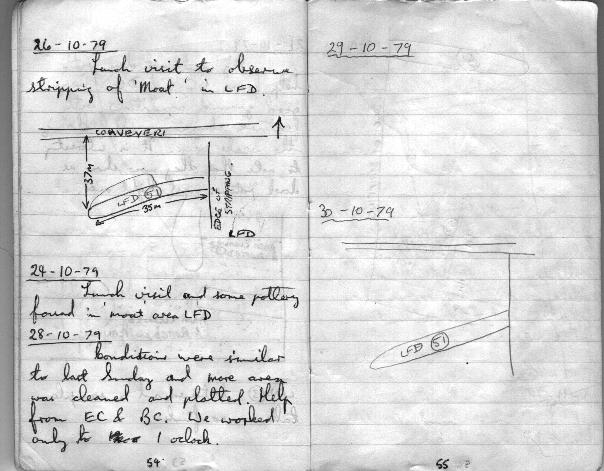 26-10-79
Lunch visit to observe
stripping of 'Moat' in LFD.
CONVEYER
37M
LFD 51
35M
EDGE OF
STRIPPING.
LFD
27-10-79
Lunch visit and some pottery
found in 'moat' area LFD
28-10-79
Conditions were similar
to last Sunday and more area
was cleaned and plotted. Help
from EC & BC. We worked
only to 1 oclock.
54
29-10-79
30-10-79
LFD 51
55